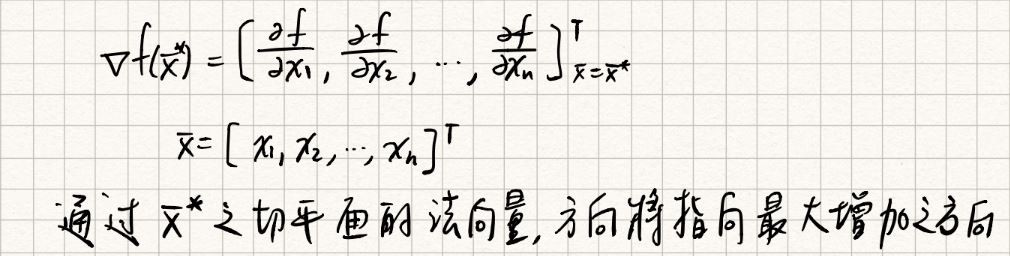 ∇f(x̄*) = [∂f/∂x₁, ∂f/∂x₂, ⋯, ∂f/∂xₙ]ᵀ x̄=x̄*
x̄ = [x₁, x₂, ⋯, xₙ]ᵀ
通过 x̄* 之切平面的法向量, 方向将指向最大增加之方向